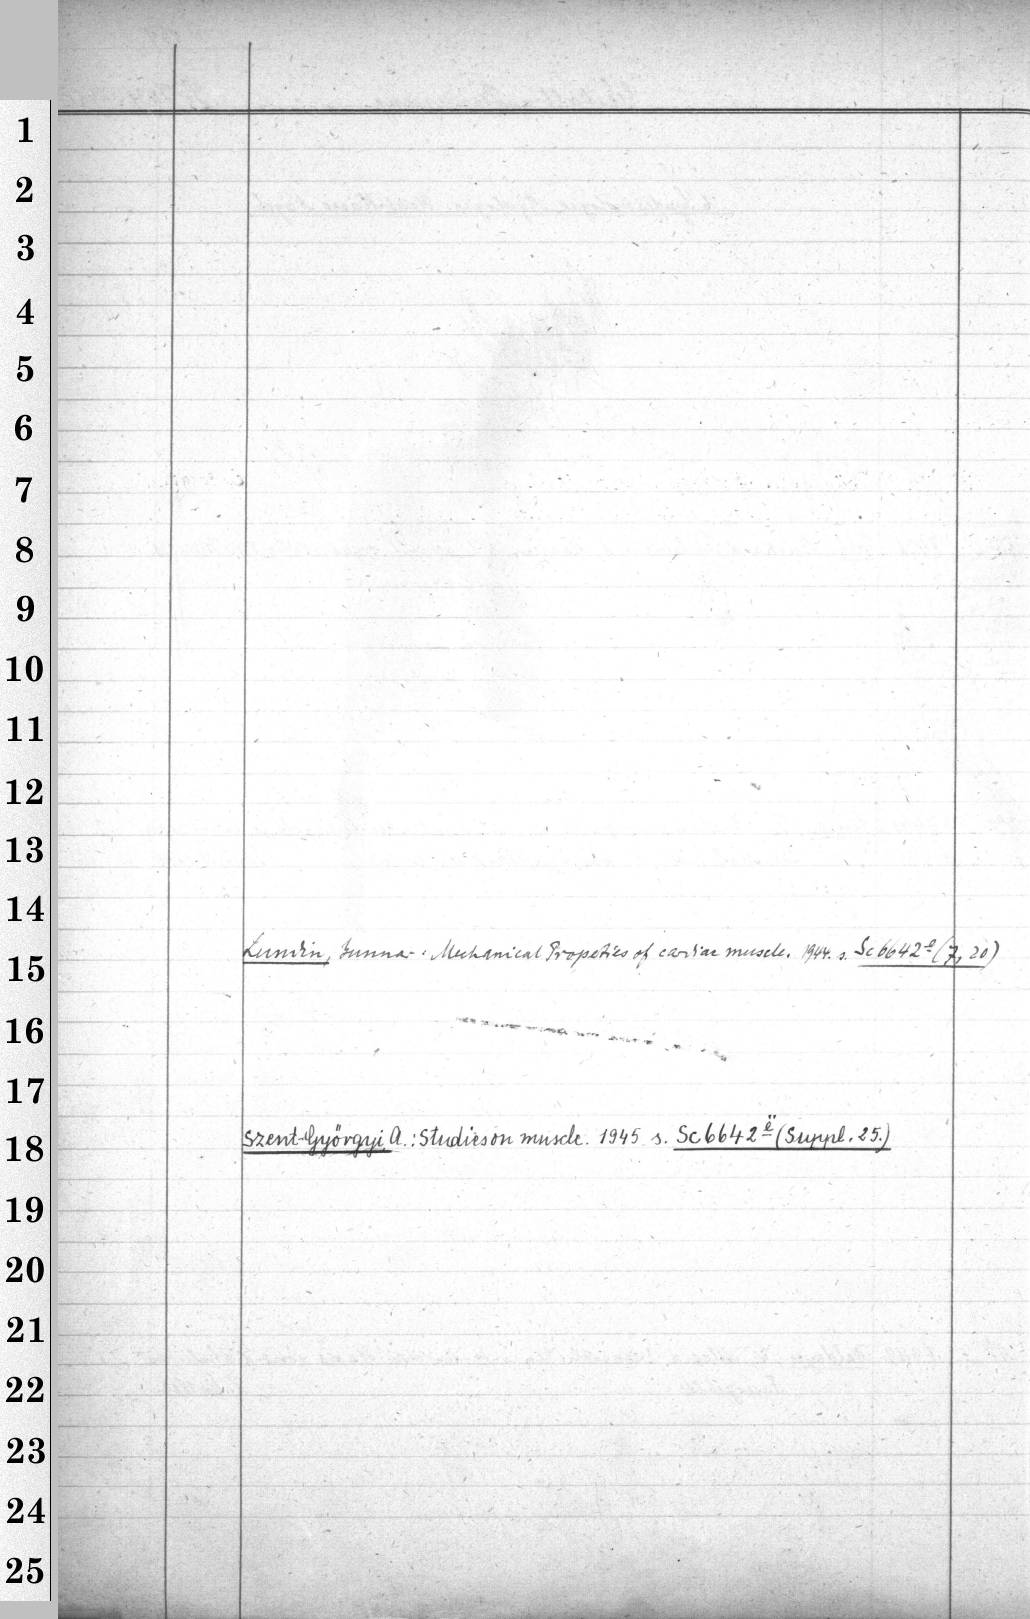 1
2
3
4
5
6
7
8
9
10
11
12
13
14
Lundin, Gunnar: Mechanical Propeties of cardiac muscle. 1944. s. Sc 6642 e (7, 20)
15
16
17
Szent-Györgyi, A.: Studies on muscle. 1945 s. Sc 6642 ë (Suppl. 25.)
18
19
20
21
22
23
24
25